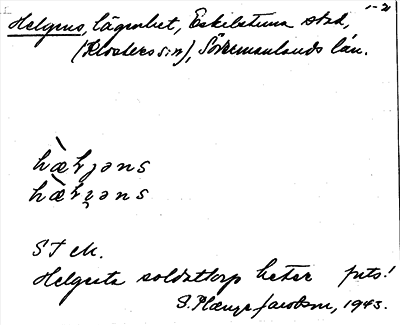 1-2
Helgens, lägenhet, Eskilstuna stad,
(Klosters s:n), Södermanlands län.
hæ̀lɟəns
hæ̀lʒəns
ST ek.
Helgesta soldattorp heter juts!
S. Jacobson, 1943.